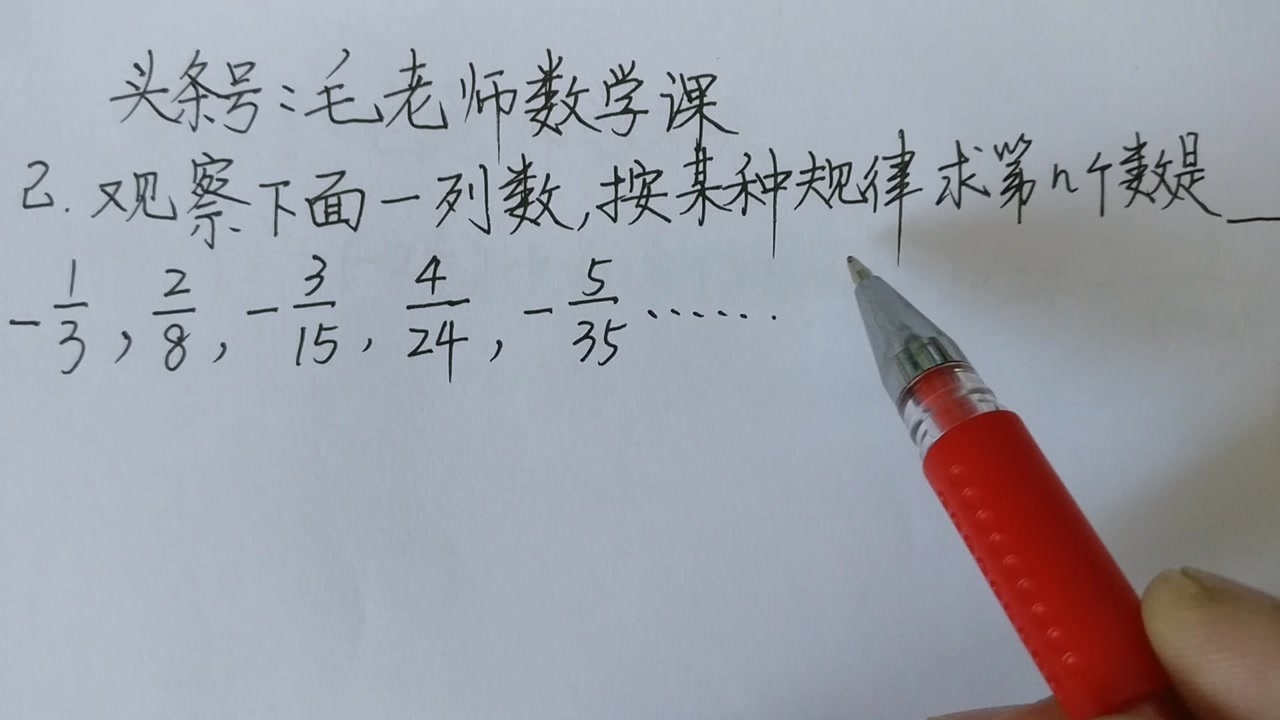 头条号:毛老师数学课
2.观察下面一列数,按某种规律求第n个数是__
-1/3, 2/8, -3/15, 4/24, -5/35……